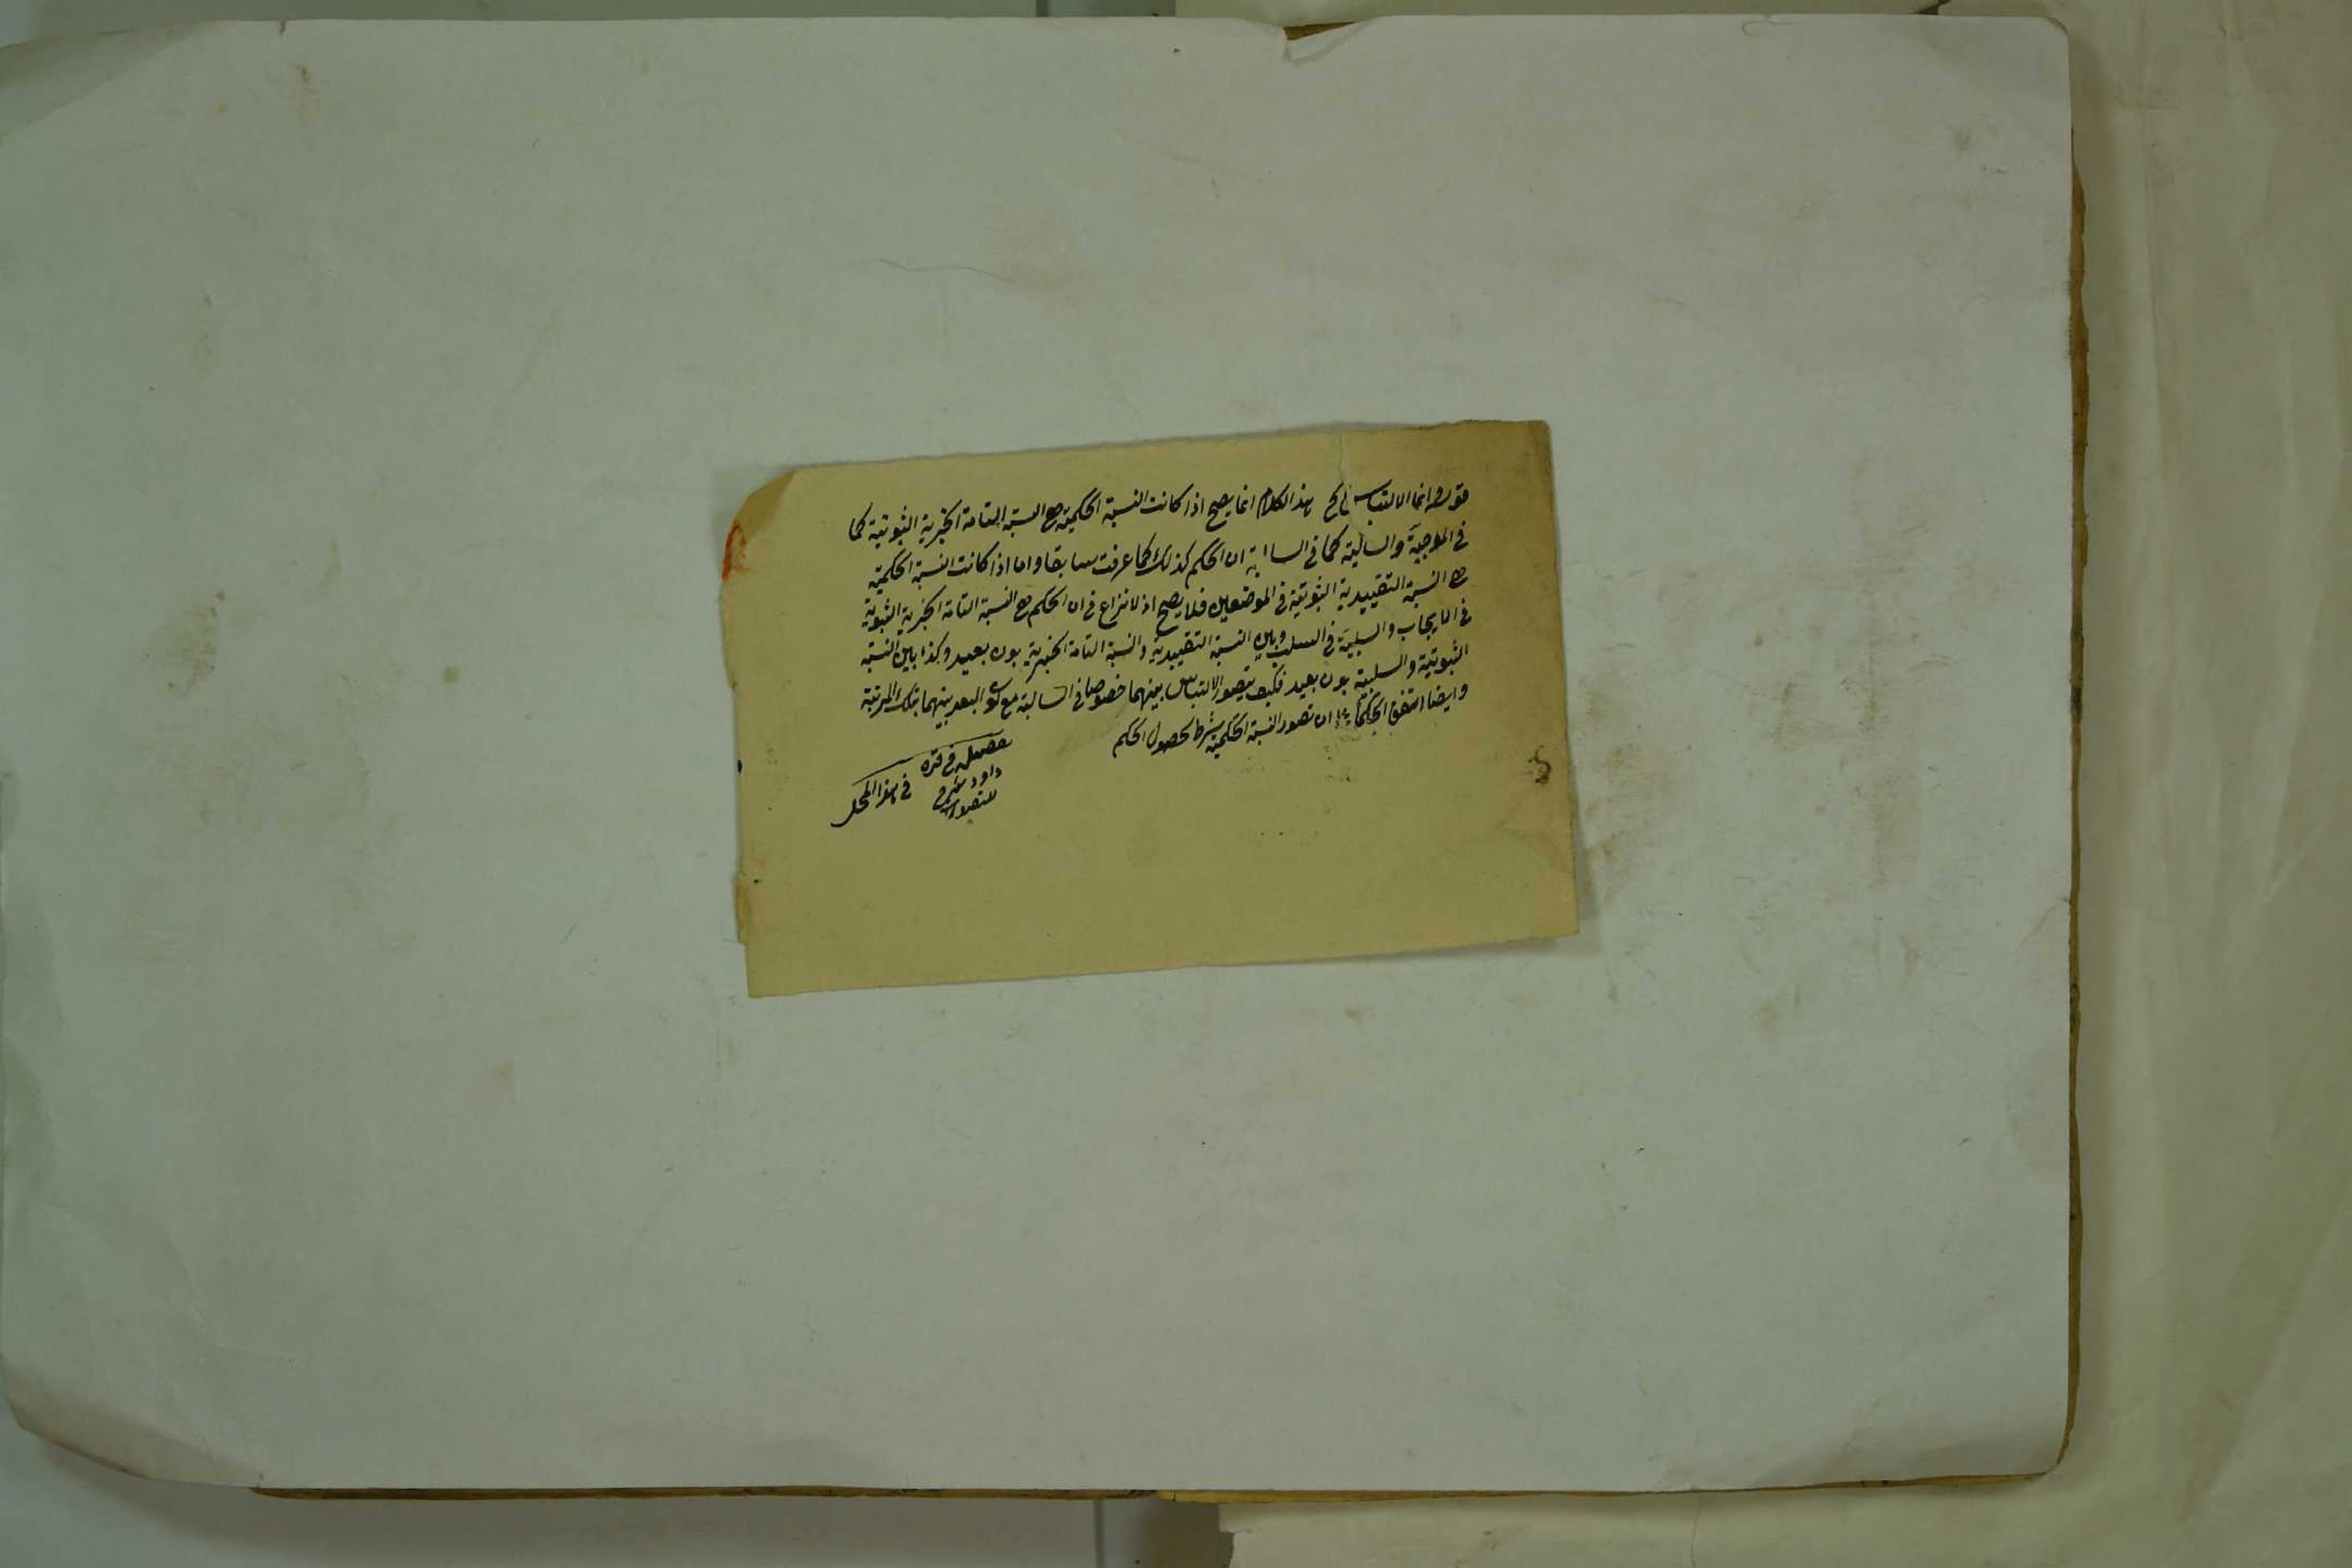 قوله وانما الالتباس الخ هذا الكلام انما يصح اذا كانت النسبة الحكمية هي النسبة التامة الخبرية الثبوتية كما
في الموجبة والسالبة كما في السالبة ان الحكم كذلك كما عرفت سابقا واما اذا كانت النسبة الحكمية
هي النسبة التقييدية الثبوتية في الموضعين فلا يصح اذ لا نزاع في ان الحكم هي النسبة التامة الخبرية الثبوتية
في الايجاب والسلبية في السلب وبين النسبة التقييدية والنسبة التامة الخبرية بون بعيد وكذا بين النسبة
الثبوتية والسلبية بون بعيد فكيف يتصور الالتباس بينهما خصوصا في السالبة مع كون البعد بينهما بتلك المرتبة
وايضا اتفق الحكماء على ان تصور النسبة الحكمية شرط لحصول الحكم
قره
داود
في هذا المحل